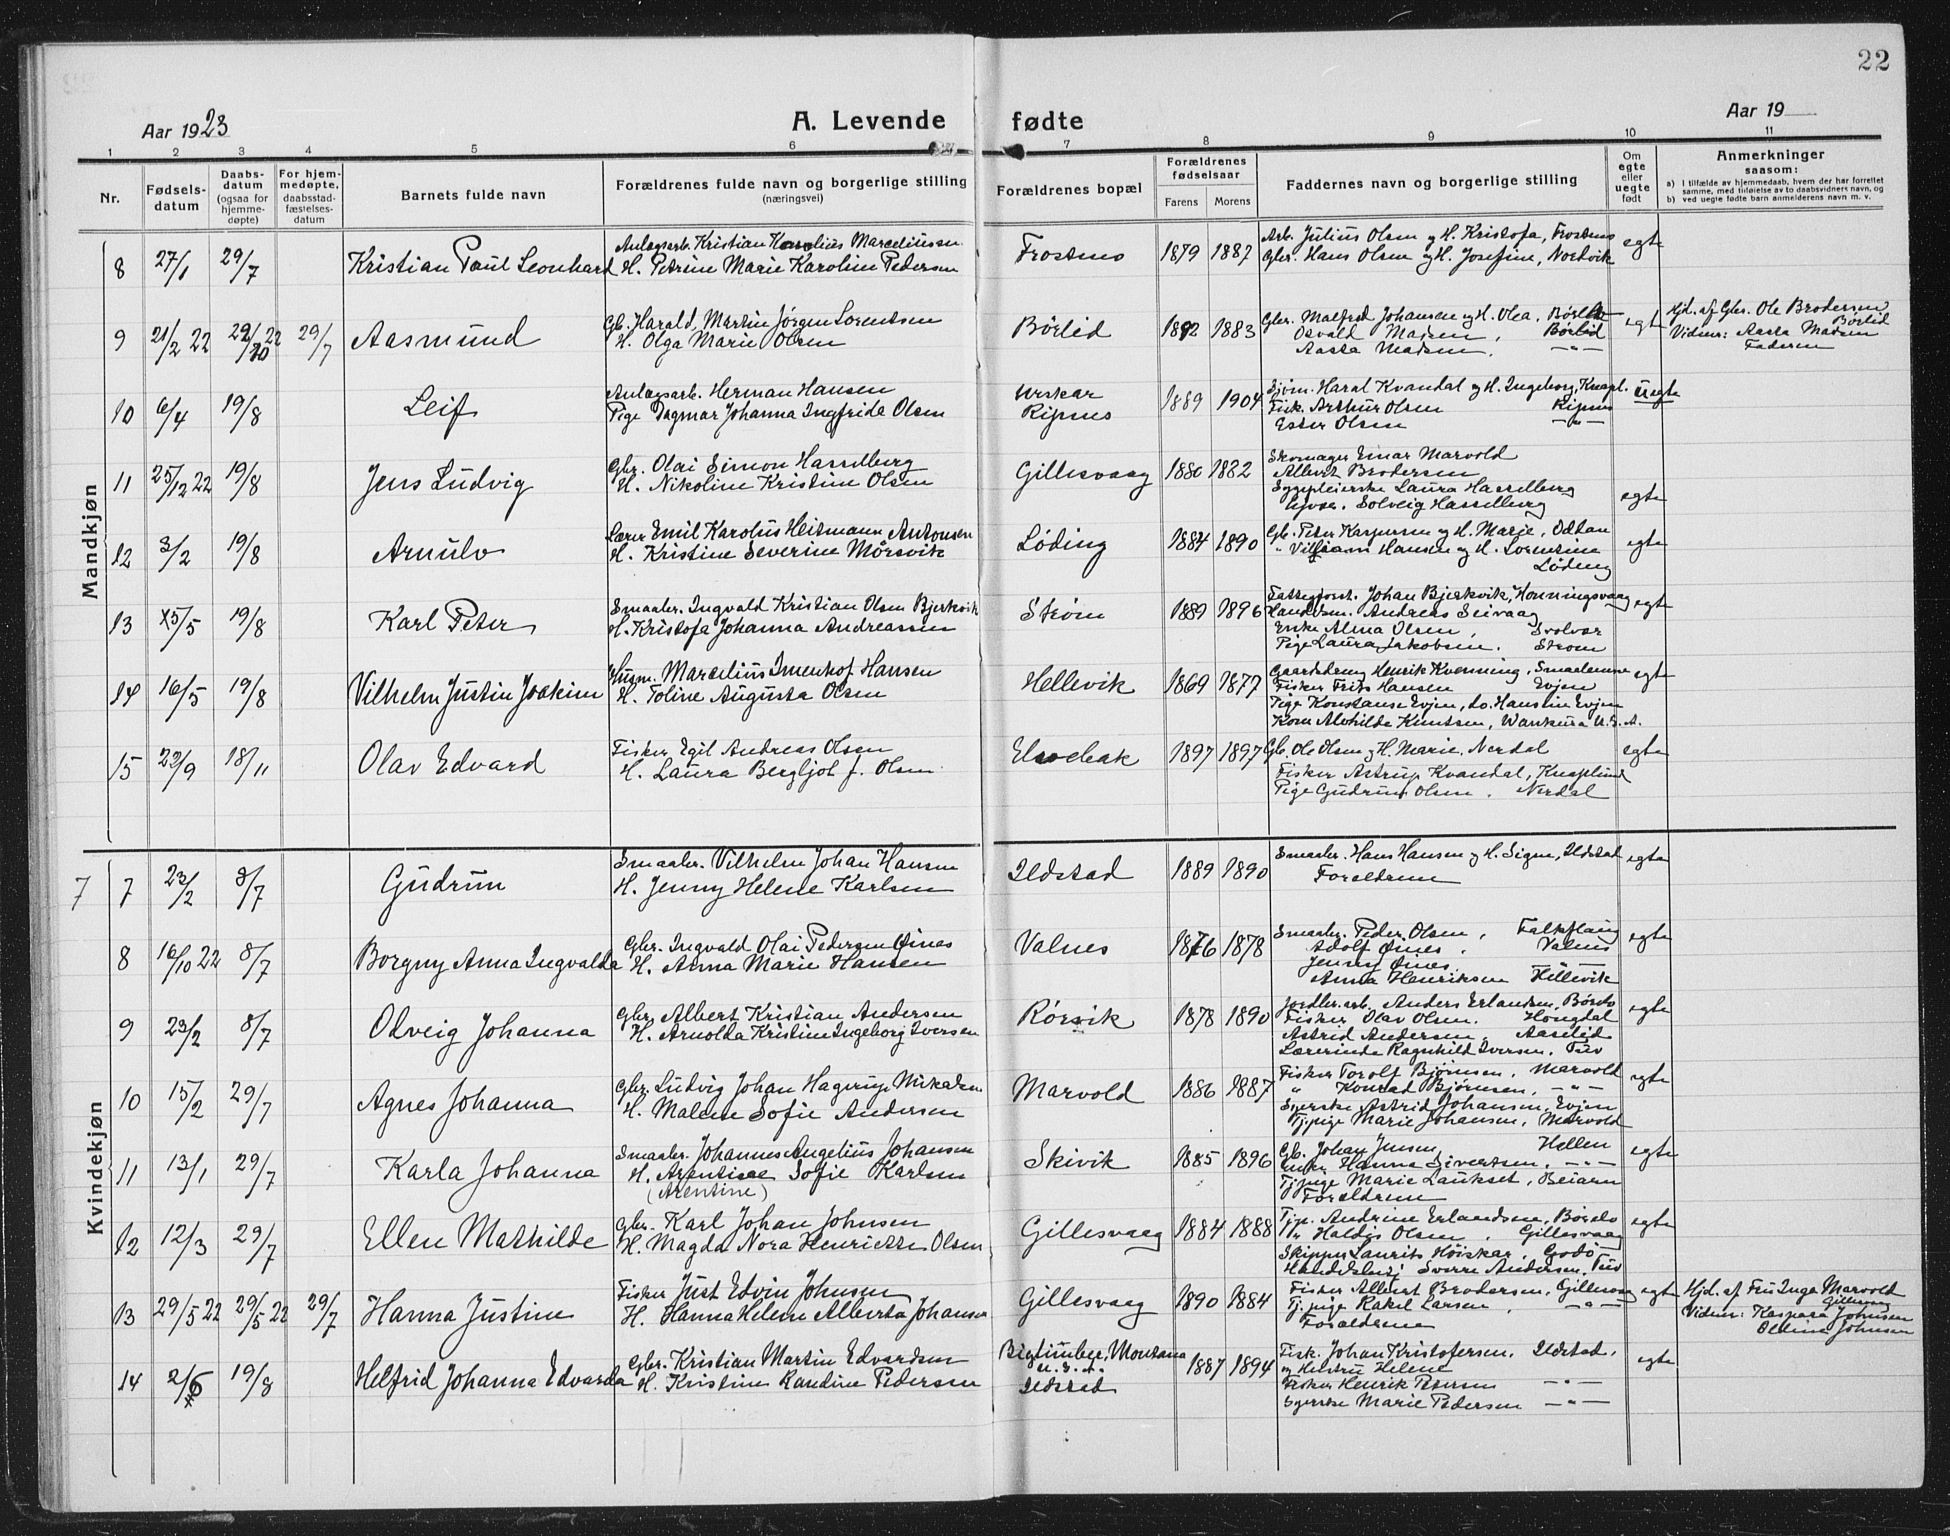 22
Aar 1923
A. Levende fødte
Aar 19
1 2 3 4 5 6 7 8 9 10 11
Nr.
Fødsels-datum
Daabs-datum (ogsaa for hjemme-døpte)
For hjem-medøpte, daabsstad-fæstelses-datum
Barnets fulde navn
Forældrenes fulde navn og borgerlige stilling (næringsvei)
Forældrenes bopæl
Forældrenes fødselsaar
Farens Morens
Faddernes navn og borgerlige stilling
Om egte eller uegte født
Anmerkninger saasom:
a) I tilfælde av hjemmedaab, hvem der har forrettet samme, med tilføielse av to daabsvidners navn, og
b) ved uegte fødte barn anmelderens navn m. v.
Mandkjøn
8 27/1 29/7 Kristian Paul Leonhard
Anlægsarb. Kristian Kornelius Marceliussen
H. Petrine Marie Karoline Pedersen
Frostnes 1879 1887
Arb. Julius Olsen og H. Kristofa, Frostnes
Gbr. Hans Olsen og H. Josefine, Nordvik
egte
9 21/2 22 22/10 22 29/7 Aasmund
Gb. Harald Martin Jørgen Lorentsen
H. Olga Marie Olsen
Børlid 1883
Gbr. Malfred Johansen og H. Olea, Børlid
Osvald Madsen, Børlid
Aasta Madsen, —"—
egte
Hjd. af Gbr. Ole Brodersen Børlid
Vidner: Aasta Madsen
Faderen
10 6/4 19/8 Leif
Anlægsarb. Herman Hansen
Pige Dagmar Johanna Ingfride Olsen
Ripnes 1889 1904
Sjøm. Haral Kvandal og H. Ingeborg, Knapl.
Fisk. Arthur Olsen Ripnes
Ester Olsen —"—
uegte
11 25/12 22 19/8 Jens Ludvig
Gbr. Olai Simon Hasselberg
H. Nikoline Kristine Olsen
Gillesvaag 1880 1882
Skomager Einar Marvold
Albert Brodersen
Sygepleierske Laura Hasselberg
Solveig Hasselberg
egte
12 3/2 19/8 Arnulv
Lærer Emil Karolus Heitmann Antonsen
H. Kristine Severine Mørsvik
Løding 1884 1890
Gb. Peter Kaspersen og H. Marie, Oddan
" Villiam Hansen og H. Lorentine
Løding
egte
13 15/5 19/8 Karl Peter
Smaabr. Ingvald Kristian Olsen Bjerkvik
H. Kristofa Johanna Andreassen
Strøm 1889 1896
Fattigforst. Johan Bjerkvik, Honningsvaag
Handelsm. Andreas Seivaag
Enke Alma Olsen, Svolvær
Pige Laura Jakobsen. Strøm
egte
14 16/5 19/8 Vilhelm Justin Joakim
Husm. Marcelius Imenhof Hansen
H. Toline Augusta Olsen
Hellevik 1869 1877
Gaardsdreng Henrik Kvenning,
Fisker Frits Hansen Evjen
Pige Konstanse Evjen, do. Hanstin Evjen
Alvhilde Knutsen, U.S.A.
egte
15 23/9 18/11 Olav Edvard
Fisker Egil Andreas Olsen
H. Laura Bergljot f. Olsen
Elvebak 1897 1897
Gb. Ole Olsen og H. Marie, Nerdal
Fisker Astrup Kvandal, Knaplund
Pige Gudrun Olsen. Nerdal
egte
Kvindekjøn
7
7 23/2 8/7 Gudrun
Smaabr. Vilhelm Johan Hansen
H. Jenny Helene Karlsen
Ildstad 1889 1890
Smaabr. Hans Hansen og H. Signe, Ildstad
Foreldrene
egte
8 16/10 22 8/7 Borgny Anna Ingvalda
Gbr. Ingvald Olai Pedersen Øines
H. Anna Marie Hansen
Valnes 1876 1878
Smaabr. Peder Olsen, Falkflaug
Adolf Øines, Valnes
Jenny Øines
Anna Henriksen Hellevik
egte
9 23/2 8/7 Odveig Johanna
Gbr. Albert Kristian Andersen
H. Arnolda Kristine Ingeborg Iversen
Rørvik 1878 1890
Jordbr.arb. Anders Erlandsen,
Fisker Olav Olsen. Høngdal
Astrid Andersen, Aaselid
Lærerinde Ragnhild Iversen, Tuv
egte
10 15/2 29/7 Agnes Johanna
Gbr. Ludvig Johan Hagerup Mikalsen
H. Malene Sofie Andersen
Marvold 1886 1887
Fisker Torolf Bjørnsen, Marvold
" Konrad Bjørnsen, —"—
Syerske Astrid Johansen, Evjen
Tj.pige Marie Johansen, Marvold
egte
11 13/1 29/7 Karla Johanna
Smaabr. Johannes Angelius Johansen
H. Arentise Sofie Karlsen
(Arentine)
Skivik 1885 1896
Gb. Johan Jensen Hellen
Enke Hanna Sivertsen, —"—
Tj.pige Marie Laukset, Beiarn
Foreldrene
egte
12 12/3 29/7 Ellen Mathilde
Gbr. Karl Johan Johnsen
H. Magda Nora Henriette Olsen
Gillesvaag 1884 1888
Tjp. Andrine Erlandsen,
" Haldis Olsen, Gillesvaag
Skipper Laurits Høiskar, Godø
Handelsbetj. Sverre Andersen, Tuv
egte
13 29/5 22 29/5 22 29/7 Hanna Justine
Fisker Just Edvin Johnsen
H. Hanna Helene Alberta Johansen
Gillesvaag 1890 1884
Fisker Albert Brodersen, Gillesvaag
Tj.pige Rakel Larsen, —"—
Foreldrene
egte
Hjd. af Fru Inga Marvold
Gillesvaag
Vidner: Kaspara Johnsen
Oldine Johnsen
14 2/6 19/8 Helfrid Johanna Edvarda
Gbr. Kristian Martin Edvardsen
H. Kristine Randine Pedersen
Bigtimber, Montana
U.S.A.
Ildstad
1887 1894
Fisk. Johan Kristofersen, Ildstad,
og Hustru Helene
Fisker Henrik Petersen —"—
Syerske Marie Pedersen —"—
egte